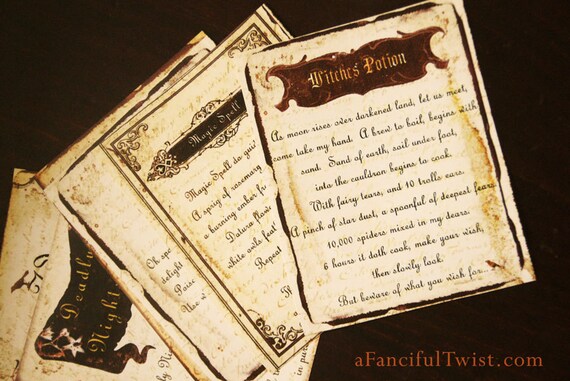 Witches Potion
As moon rises over darkened land, let us meet,
come take my hand. A brew to boil, begins with
sand. Sand of earth, soil under foot,
into the cauldron begins to cook.
With fairy tears, and 10 trolls ears.
A pinch of star dust, a spoonful of deepest fears,
10,000 spiders mixed in my dears.
6 hours it doth cook, make your wish,
then slowly look.
But beware of what you wish for...
Magic Spell
Magic Spell do
A sprig of rosemary
a burning ember
Datura
white owls
Repeat
delight
Deadly
Night
aFancifulTwist.com